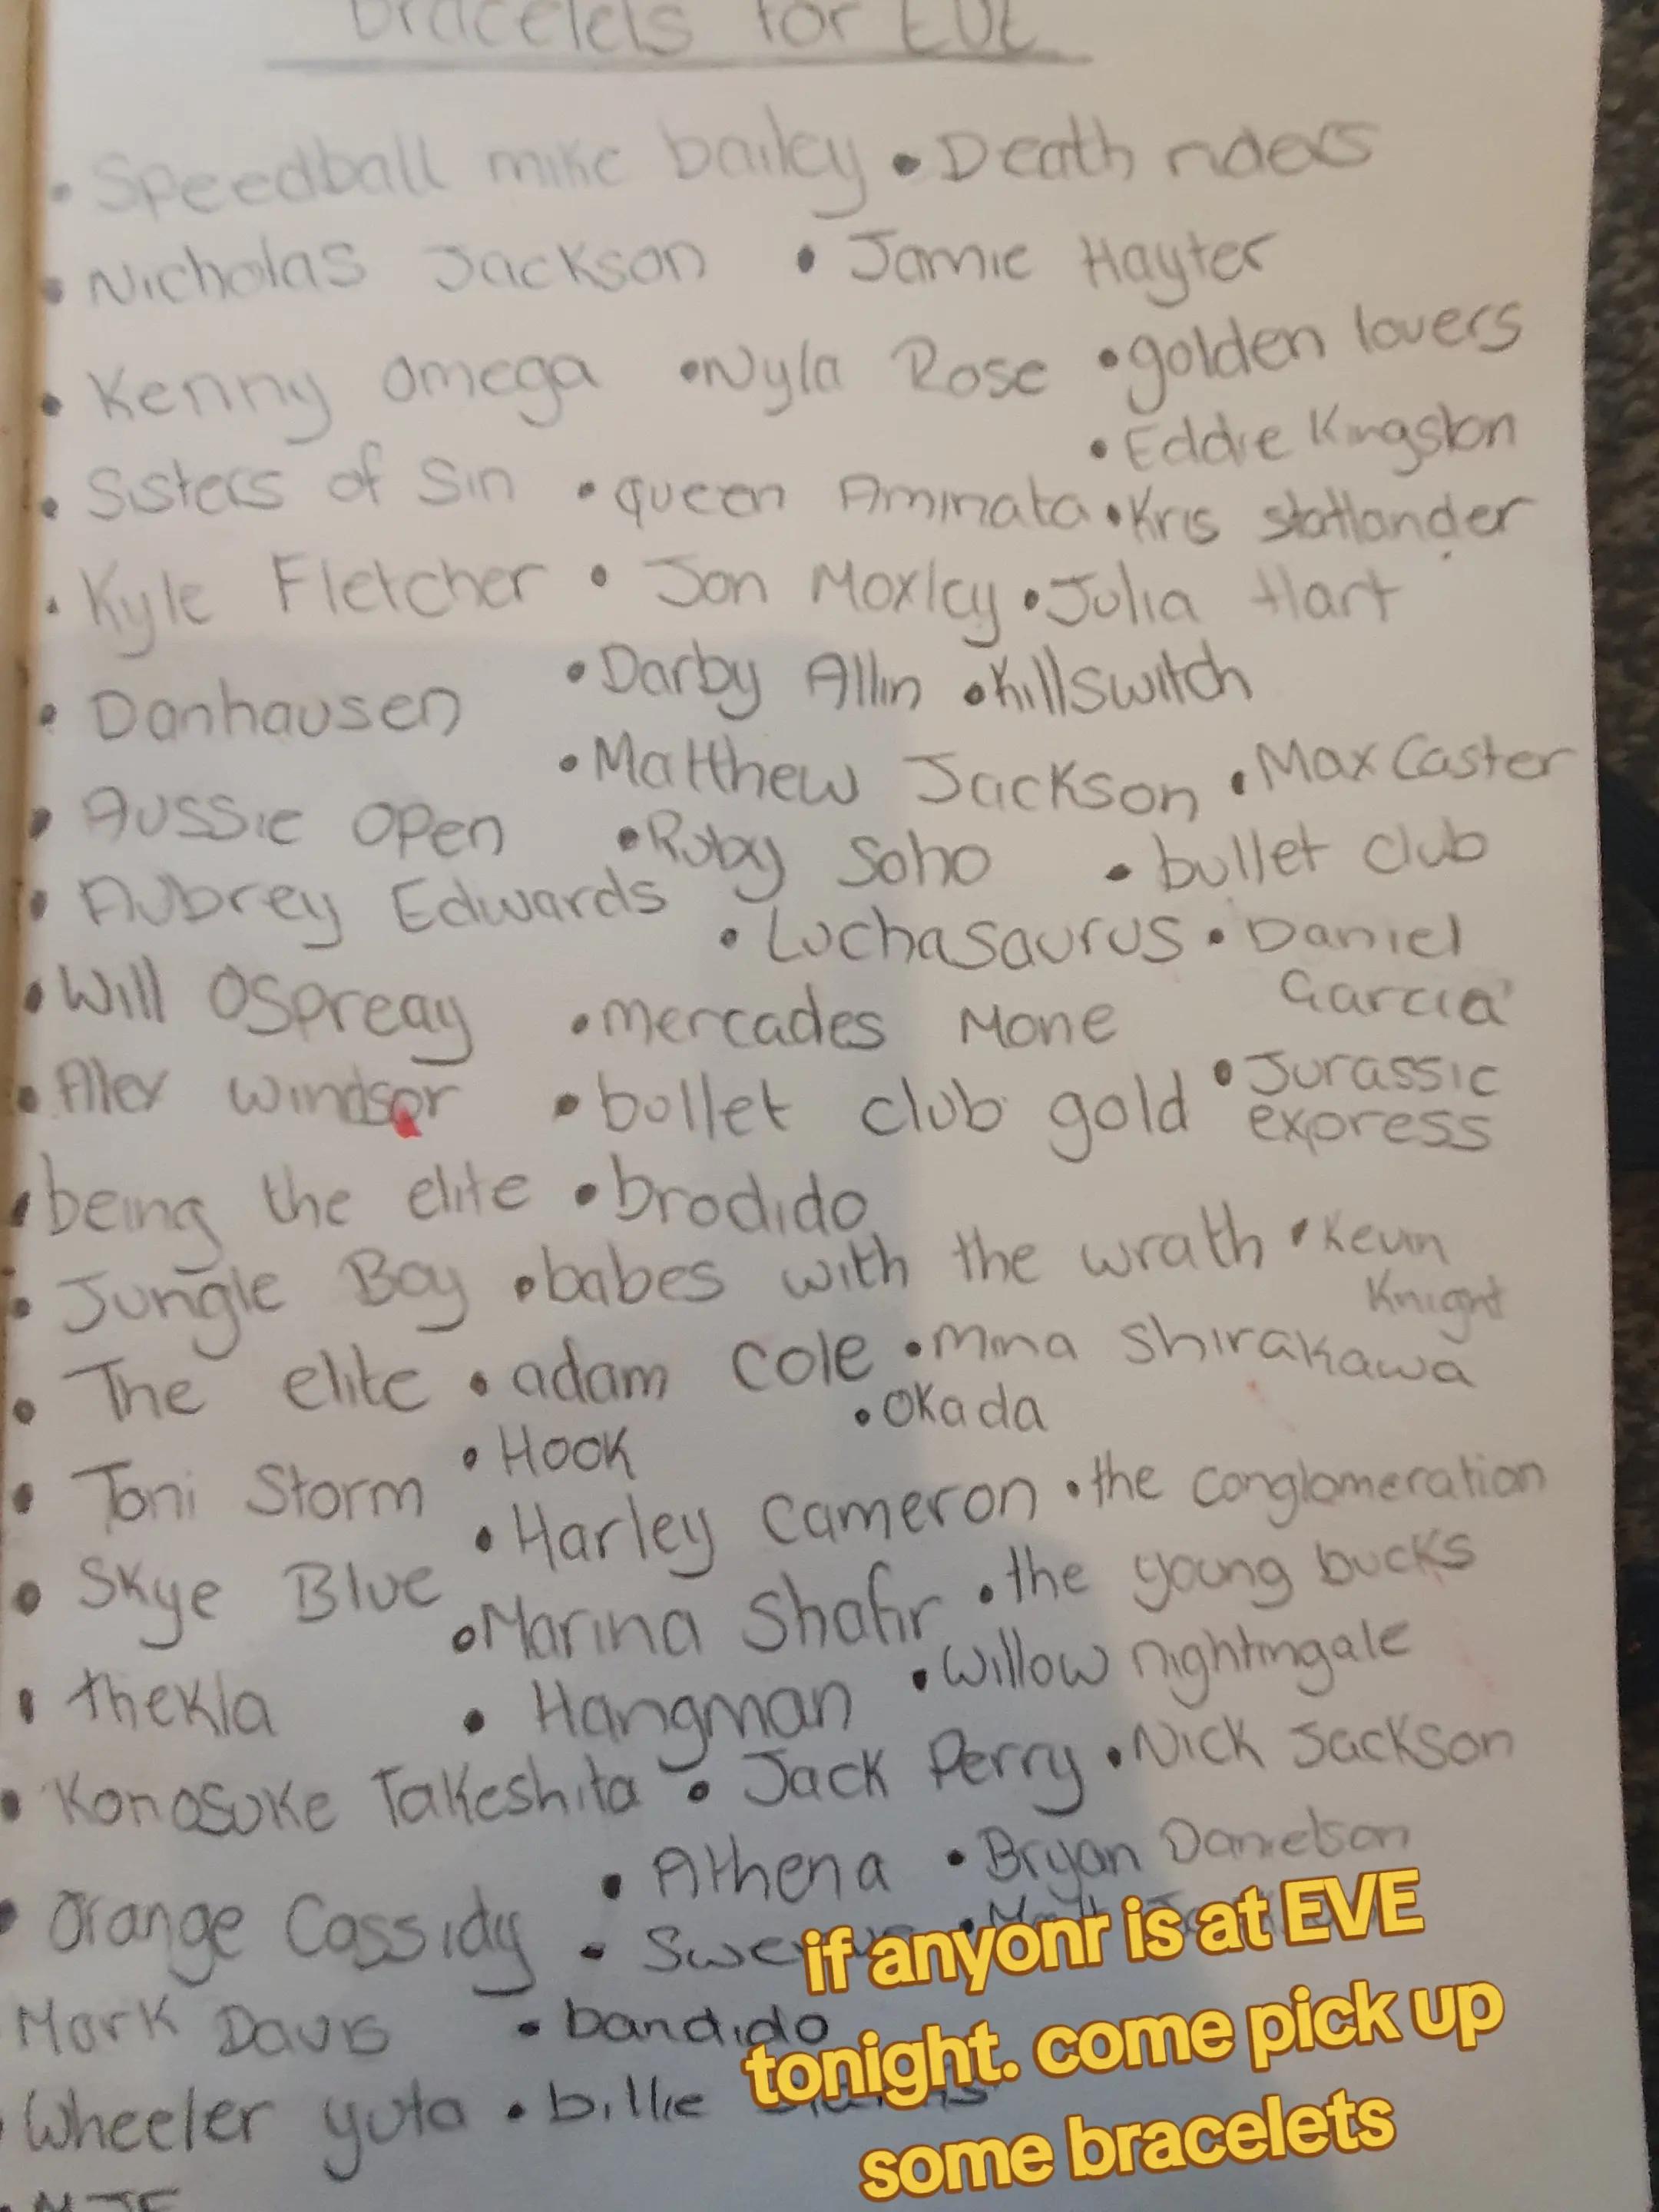 bracelets for EVE
• Speedball mike bailey • Death riders
• Nicholas Jackson • Jamie Hayter
• Kenny Omega • Nyla Rose • golden lovers
• Eddie Kingston
• Sisters of Sin • queen Aminata • Kris statlander
• Kyle Fletcher • Jon Moxley • Julia Hart
• Danhausen • Darby Allin • Killswitch
• Matthew Jackson • Max Caster
• Aussie Open • Ruby Soho • bullet club
• Aubrey Edwards
• Luchasaurus • Daniel
Garcia
• Will Ospreay • mercades Mone
• Alex windsor • bullet club gold • Jurassic
express
• being the elite • brodido
• Jungle Boy • babes with the wrath • Kevin
Knight
• The elite • adam Cole • Mina Shirakawa
• Okada
• Toni Storm • Hook
• Harley Cameron • the conglomeration
• Skye Blue
• Marina Shafir • the young bucks
• thekla • Hangman • Willow nightingale
• Konosuke Takeshita • Jack Perry • Nick Jackson
• Athena • Bryan Danielson
• Orange Cassidy •
Mark Davis • bandido
Wheeler yuta • billie
MJF
if anyonr is at EVE
tonight. come pick up
some bracelets